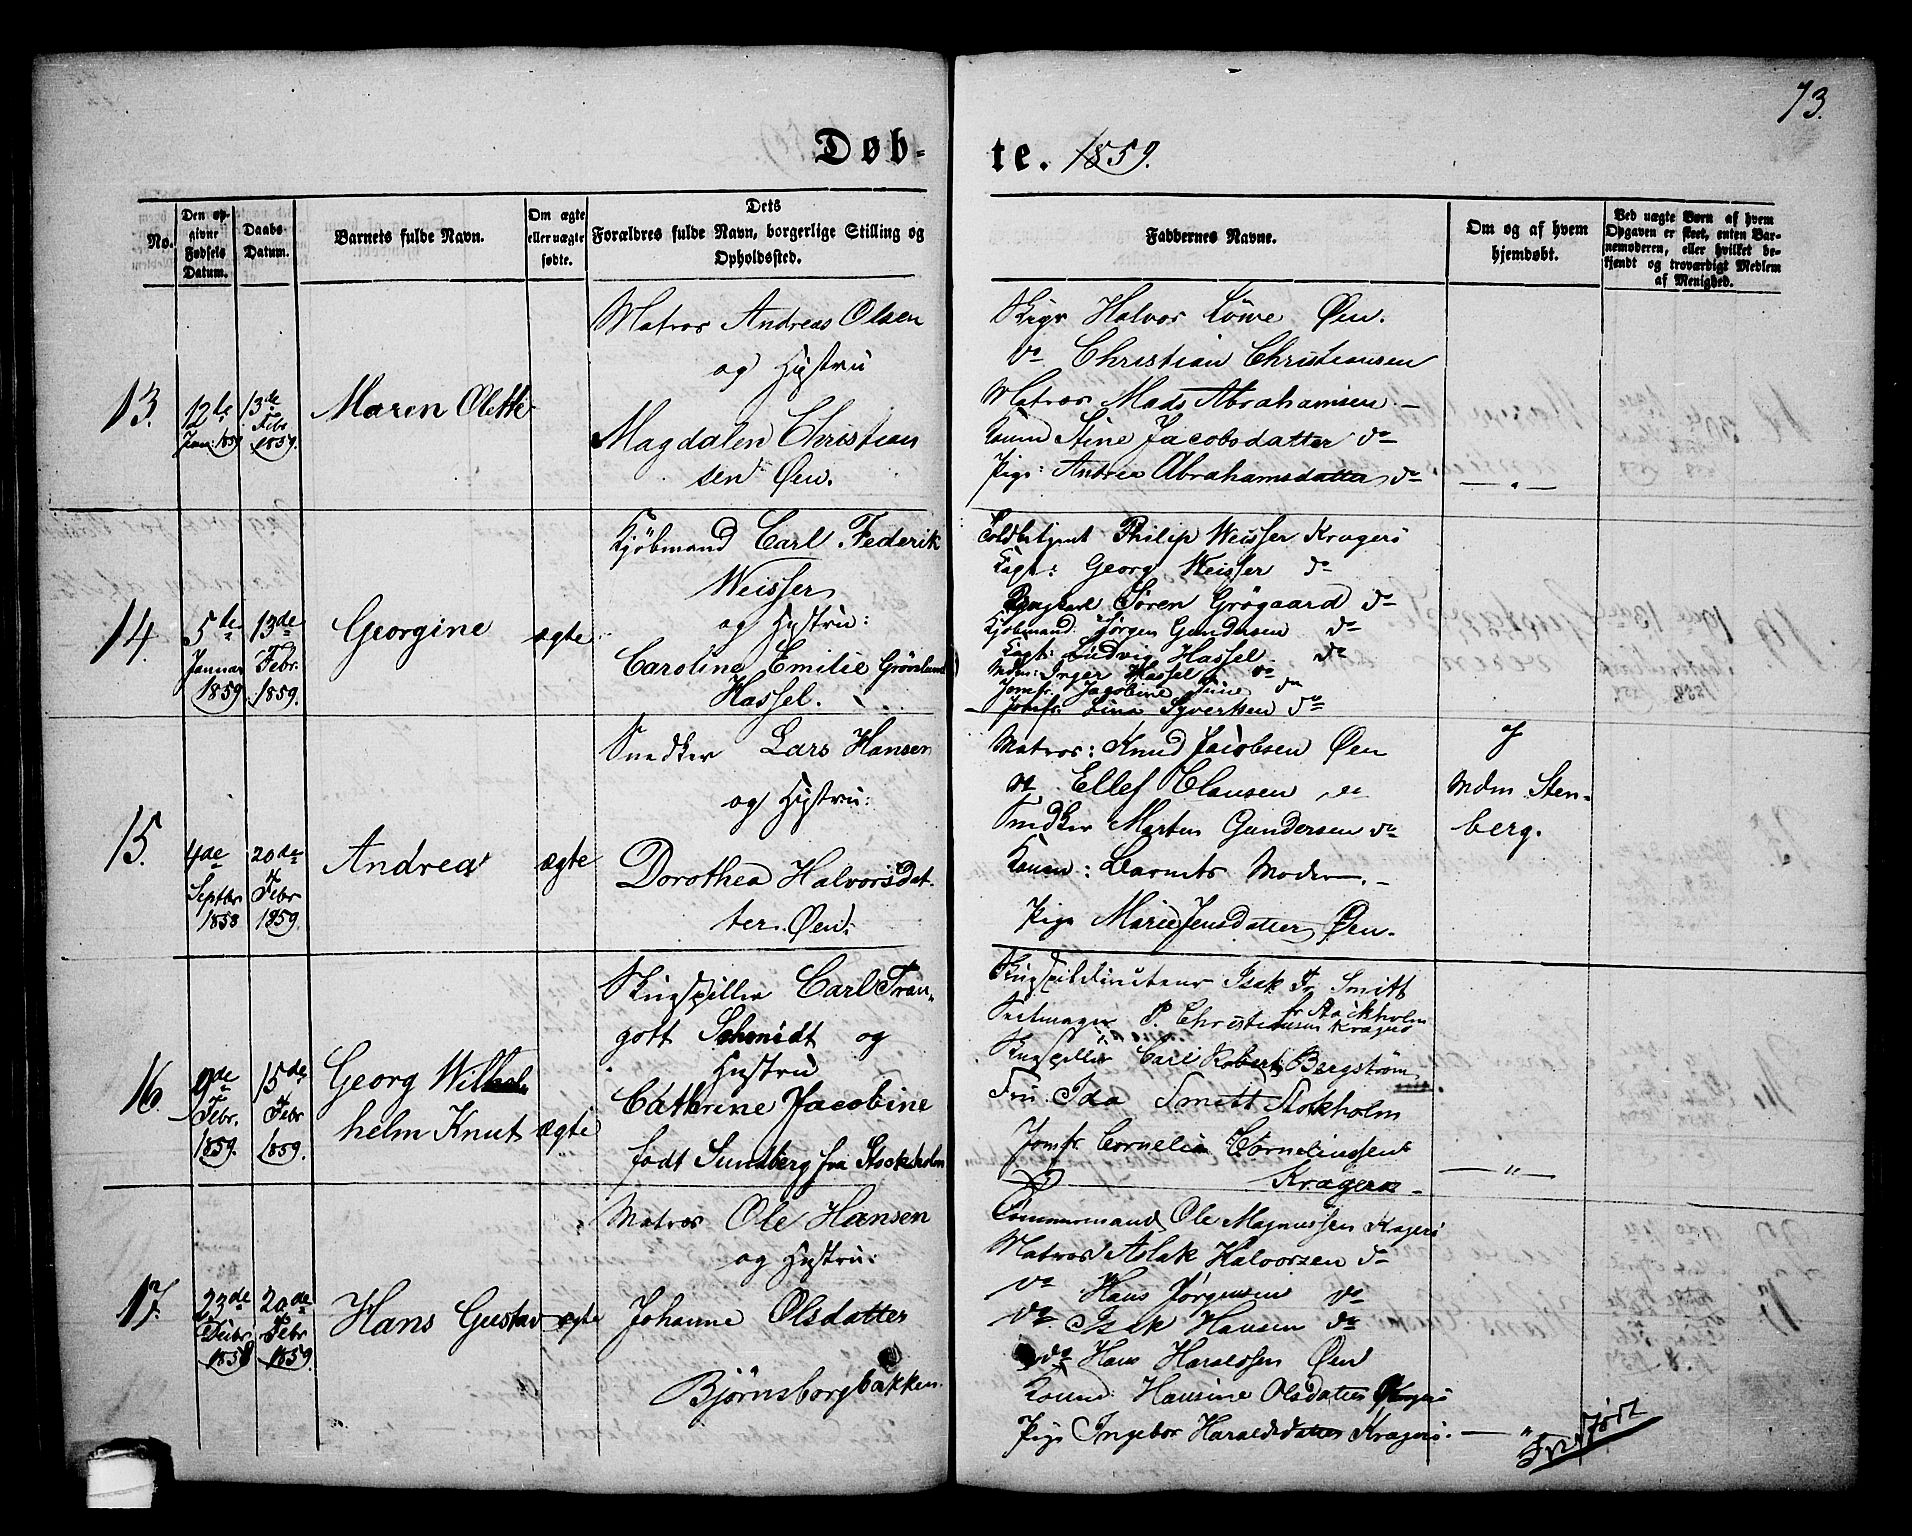 73.
Døb-
te. 1859.
No.
Den op-
givne
Fødsels
Datum.
Daabs-
Datum.
Barnets fulde Navn.
Om ægte
eller uægte
fødte.
Dets
Forældres fulde Navn, borgerlige Stilling og
Opholdssted.
Faddernes Navne.
Om og af hvem
hjemdøbt.
Ved uægte Børn af hvem
Opgaven er skeet, enten Bar-
nemoderen, eller hvilket be-
kjendt og troværdigt Medlem
af Menighed.
13.
12te
Jan: 1859
13de
Febr
1859.
Maren Olette
Matros Andreas Olsen
og Hystru
Magdalen Christian
sen Øen.
Halvor Løwe Øen.
do Christian Christiansen
Matros Mads Abrahamsen -
Stine Jacobsdatter do
Pige: Andrea Abrahamsdatter do
- " -
14.
5te
Januar
1859
13de
Febr.
1859.
Georgine
ægte
Kjøbmand Carl Federik
Weisser
og Hystru:
Caroline Emilie Grønlund
Hassel.
Toldbetjent Philip Weisser Kragerø
Capt: Georg Weisser do
Søren Grögaard do
Kjøbmand Jørgen Gundersen do
Capt: Ludvig Hassel do
Mdm: Inger Hassel do
Jomfr. Jacobine do
Jomfr. Lina Syvertsen do
15.
4de
Septbr
1858
20de
Febr
1859.
Andrea
ægte
Snedker Lars Hansen
og Hystru:
Dorothea Halvorsdat-
ter. Øen.
Matros: Knud Jacobsen Øen
do Ellef Clausen do
Snedker Morten Gundersen do
Konen: Barnets Moder -
Pige Marie Jensdatter Øen.
af
Mdm Sten-
berg.
16.
9de
Febr.
1859.
15de
Febr
1859.
Georg Wilhel
helm Knut
ægte
Carl Tran-
gott Schmidt og
Hystru
Cathrine Jacobine
født Sundberg fra Stockholm
Isak Fr Smitt
fr Stockholm
P. Christiansen Kragerø
Carl Robert Bergstrøm
Fru. Ida Smett Stokholm
Jomfr Cornelia Cornelinssen
Kragerø -
- " -
17.
23de
Debr
1858
20de
Febr
1859.
Hans Gustav
ægte
Matros Ole Hansen
og Hystru:
Johanne Olsdatter
Bjørnsborgbakken.
Tømmermand Ole Magnussen Kragerø
Matros Aslak Halvorsen do
do Hans Jørgensen do
do Isak Hansen do
do Hans Haraldsen Øen
Hansine Olsdatter Kragerø
Pige Ingebor Haraldsdatter Kragerø. - " -
Indført